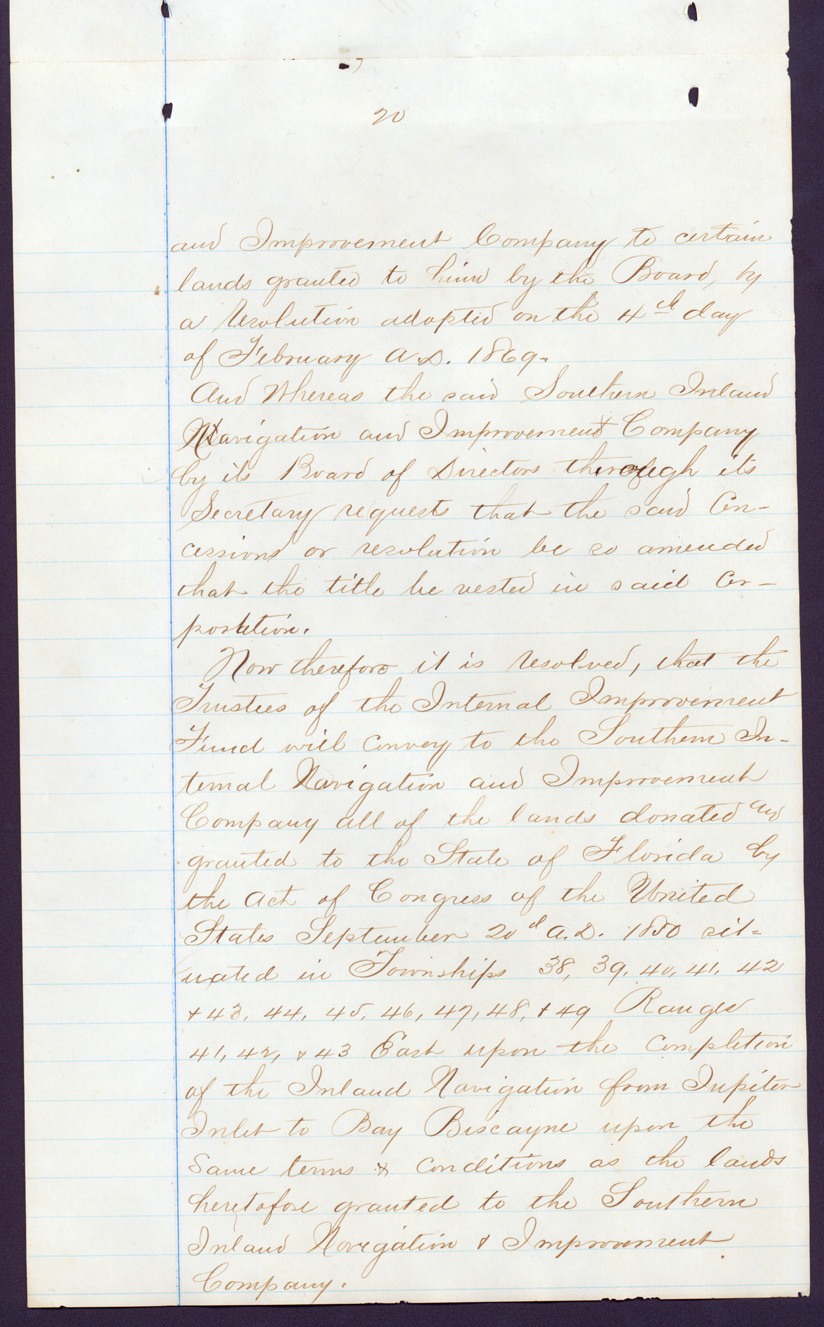 20
and Improvement Company to certain
lands granted to him by the Board, by
a resolution adopted on the 4th day
of February A.D. 1869.
And Whereas the said Southern Inland
Navigation and Improvement Company
by its Board of Directors through its
Secretary request that the said Con-
cessions or resolution be so amended
that the title be vested in said Cor-
poration.
Now therefore it is resolved, that the
Trustees of the Internal Improvement
Fund will convey to the Southern In-
ternal Navigation and Improvement
Company all of the lands donated and
granted to the State of Florida by
the Act of Congress of the United
States September 20d A.D. 1850 sit-
uated in Townships 38, 39, 40, 41, 42
+ 43, 44, 45, 46, 47, 48, + 49 Ranges
41, 42, + 43 East upon the completion
of the Inland Navigation from Jupiter
Inlet to Bay Biscayne upon the
Same terms & conditions as the lands
heretofore granted to the Southern
Inland Navigation & Improvement
Company.